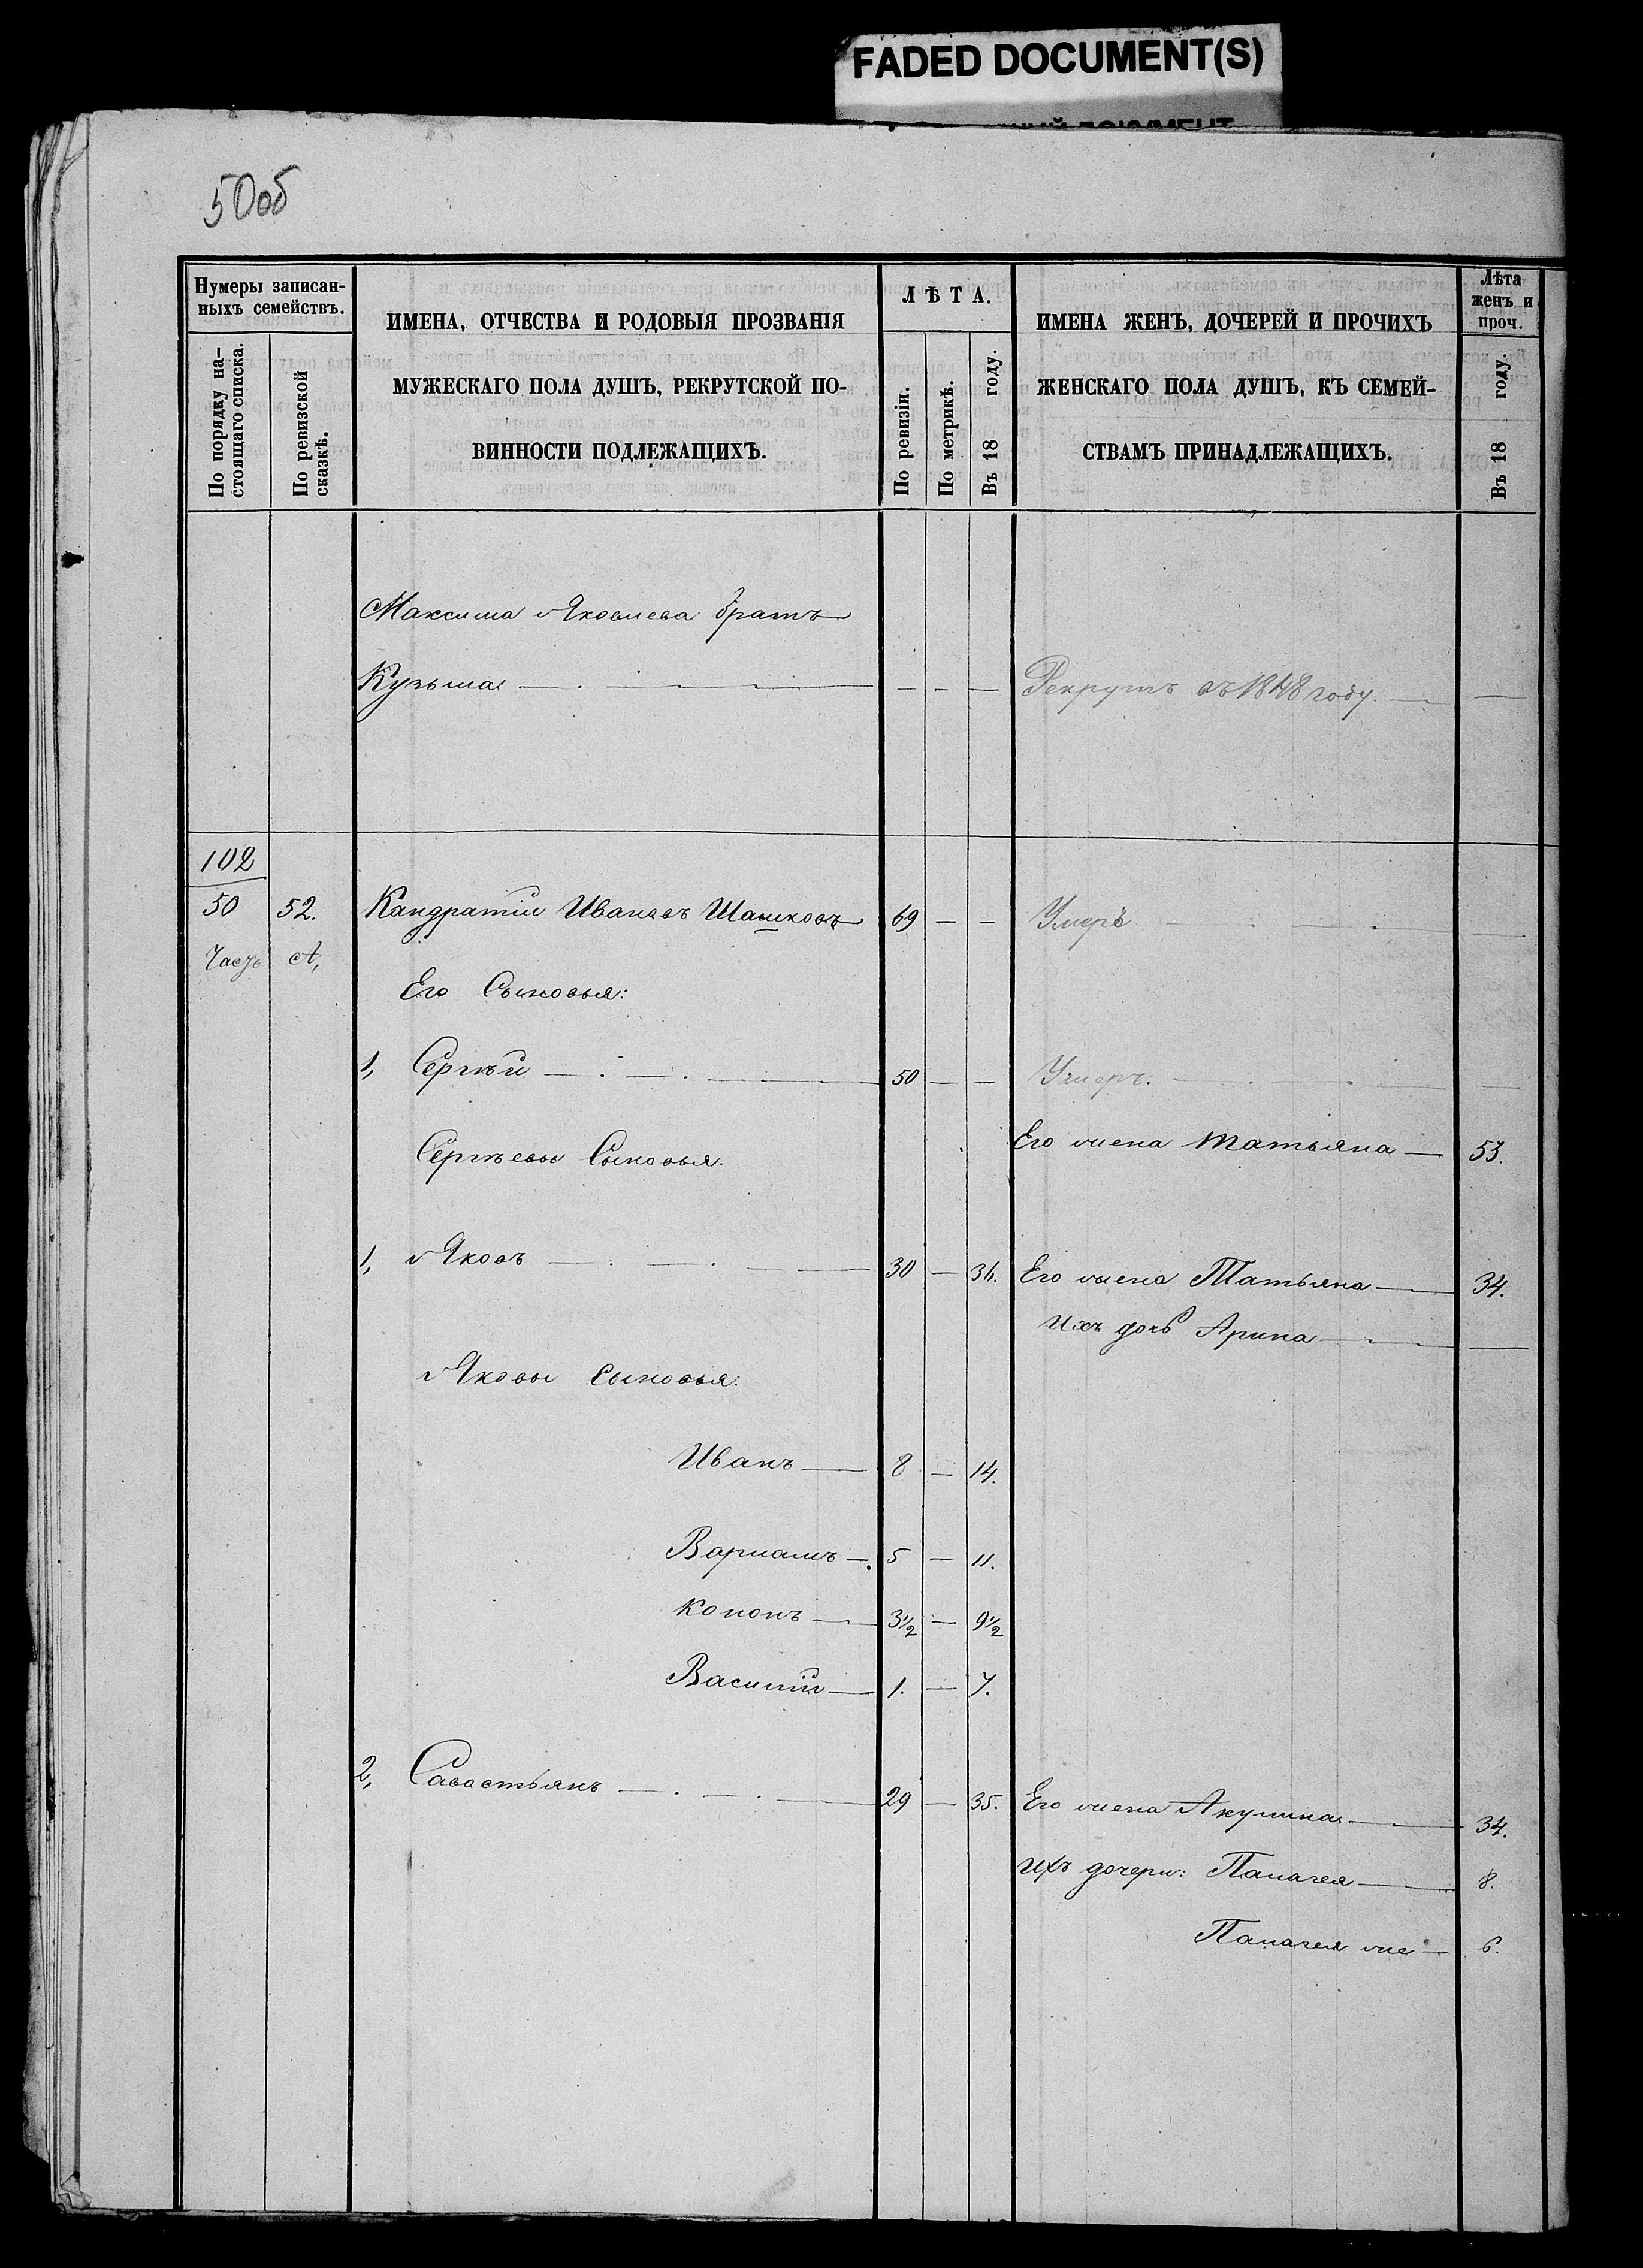 FADED DOCUMENT(S)
50об
Нумеры записан-
ныхъ семействъ.
По порядку на-
стоящаго списка.
По ревизской
сказкѣ.
ИМЕНА, ОТЧЕСТВА И РОДОВЫЯ ПРОЗВАНІЯ
МУЖЕСКАГО ПОЛА ДУШЪ, РЕКРУТСКОЙ ПО-
ВИННОСТИ ПОДЛЕЖАЩИХЪ.
ЛѢТА.
По ревизіи.
По метрикѣ.
Въ 18 году.
ИМЕНА ЖЕНЪ, ДОЧЕРЕЙ И ПРОЧИХЪ
ЖЕНСКАГО ПОЛА ДУШЪ, КЪ СЕМЕЙ-
СТВАМЪ ПРИНАДЛЕЖАЩИХЪ.
Лѣта
женъ и
проч.
Въ 18 году.
Максима Яковлева братъ
Кузьма — — — — Рекрутъ въ 1848 году. —
102
50 52. Кандратій Ивановъ Шашковъ 69 — — Умеръ —
Часть А,
Его Сыновья:
1, Сергѣй — 50 — — Умеръ. —
Сергѣевы Сыновья. Его жена Татьяна — 53.
1, Яковъ — 30 — 36. Его жена Татьяна — 34.
Ихъ дочь Арина — —
Яковы Сыновья:
Иванъ — 8 — 14.
Варламъ — 5 — 11.
Кононъ — 3½ — 9½
Василій — 1. — 7.
2, Савостьянъ — 29 — 35. Его жена Акулина — 34.
Ихъ дочери: Палагея — 8.
Палагея же — 6.